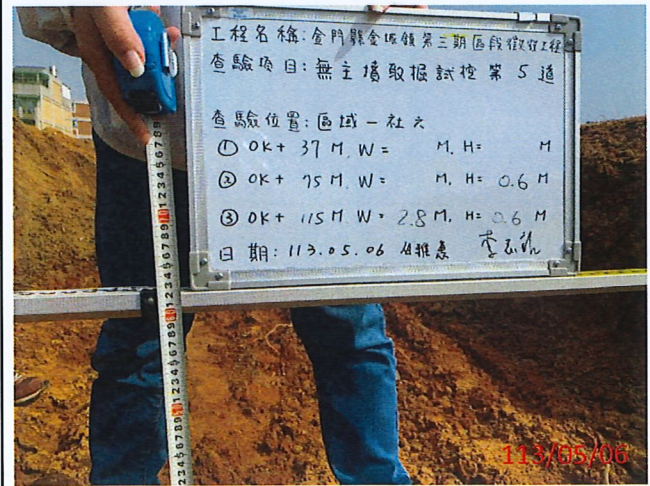 工程名稱：金門縣金城鎮第三期區段徵收工程
查驗項目：無主墳取掘試挖第5道
查驗位置：區域一社六
① 0K+ 37M, W= M, H= M
② 0K+ 75M, W= M, H= 0.6 M
③ 0K+ 115M, W= 2.8 M, H= 0.6 M
日期：113.05.06
113/05/06